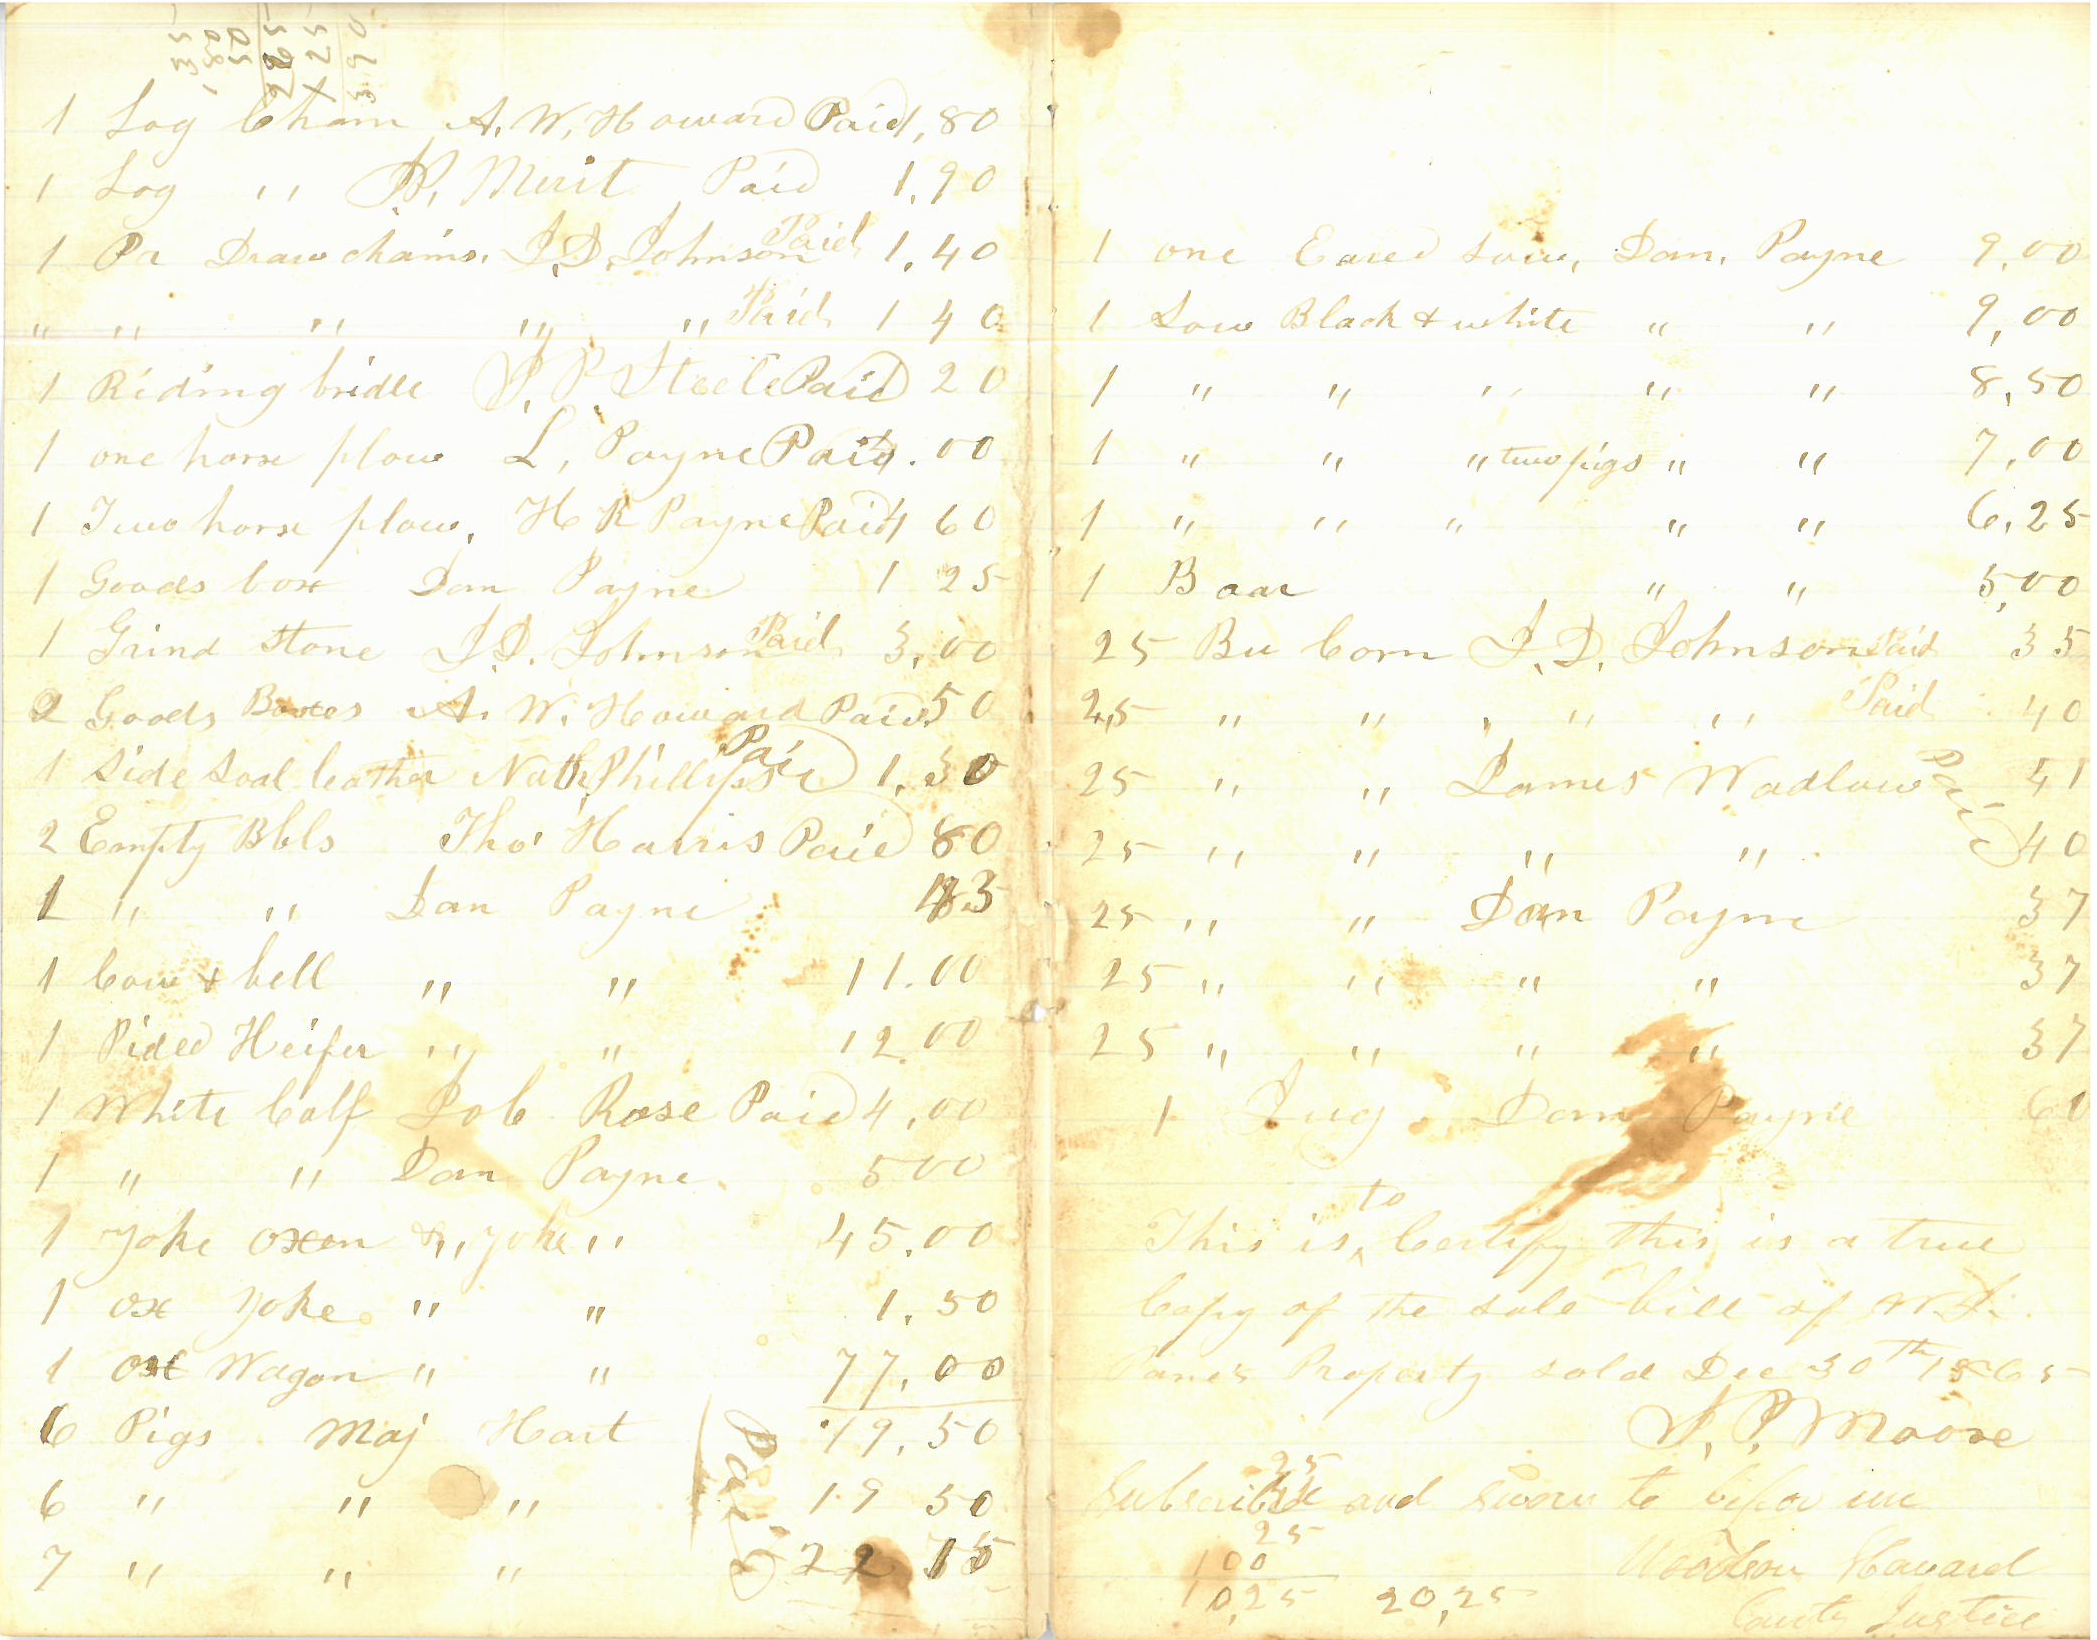 135
80
50
265
x25
390
1 Log Chain A. W. Howard Paid 1,80
1 Log " Merit Paid 1.90
1 Pr Draw chains. J. D. Johnson Paid 1.40
" " " " " Paid 1 40
1 Riding bridle J. P. Steele Paid 20
1 one horse plow L. Payne Paid .00
1 Two horse plow, H R Payne Paid 4 60
1 Goods box Dan Payne 1 25
1 Grind stone J D. Johnson Paid 3,00
2 Goods Boxes A. W. Howard Paid .50
1 Side Soal leather Nath. Phillips Paid 1.30
2 Empty Bbls Tho' Harris Paid 80
1 " " Dan Payne
1 Cow & bell " " 11.00
1 Pided Heifer " " 12.00
1 White Calf Job Rose Paid 4,00
1 " " Dan Payne 5 00
1 Yoke Oxen & " yoke " 45.00
1 ox Yoke " " 1.50
1 ox Wagon " " 77,00
6 Pigs Maj Hart 19,50
6 " " " 19 50
7 " " " 22 75
Paid
1 one Eared Sow, Dan. Payne 9,00
1 Sow Black & white " " 9,00
1 " " " " " 8,50
1 " " " two pigs " " 7,00
1 " " " " " 6,25
1 Boar " " 5,00
25 Bu Corn J. D. Johnson Paid 35
25 " " " " Paid 40
25 " " James Wadlow Paid 41
25 " " " " 40
25 " " Dan Payne 37
25 " " " " 37
25 " " " " 37
1 Jug Dan Payne 60
This is to Certify this is a true
Copy of the sale bill of W.
Property sold Dec 30th 1865
J. P. Moore
25
Subscribed and sworn to befor me
25
100 Woodson Howard
10,25 20,25 County Justice